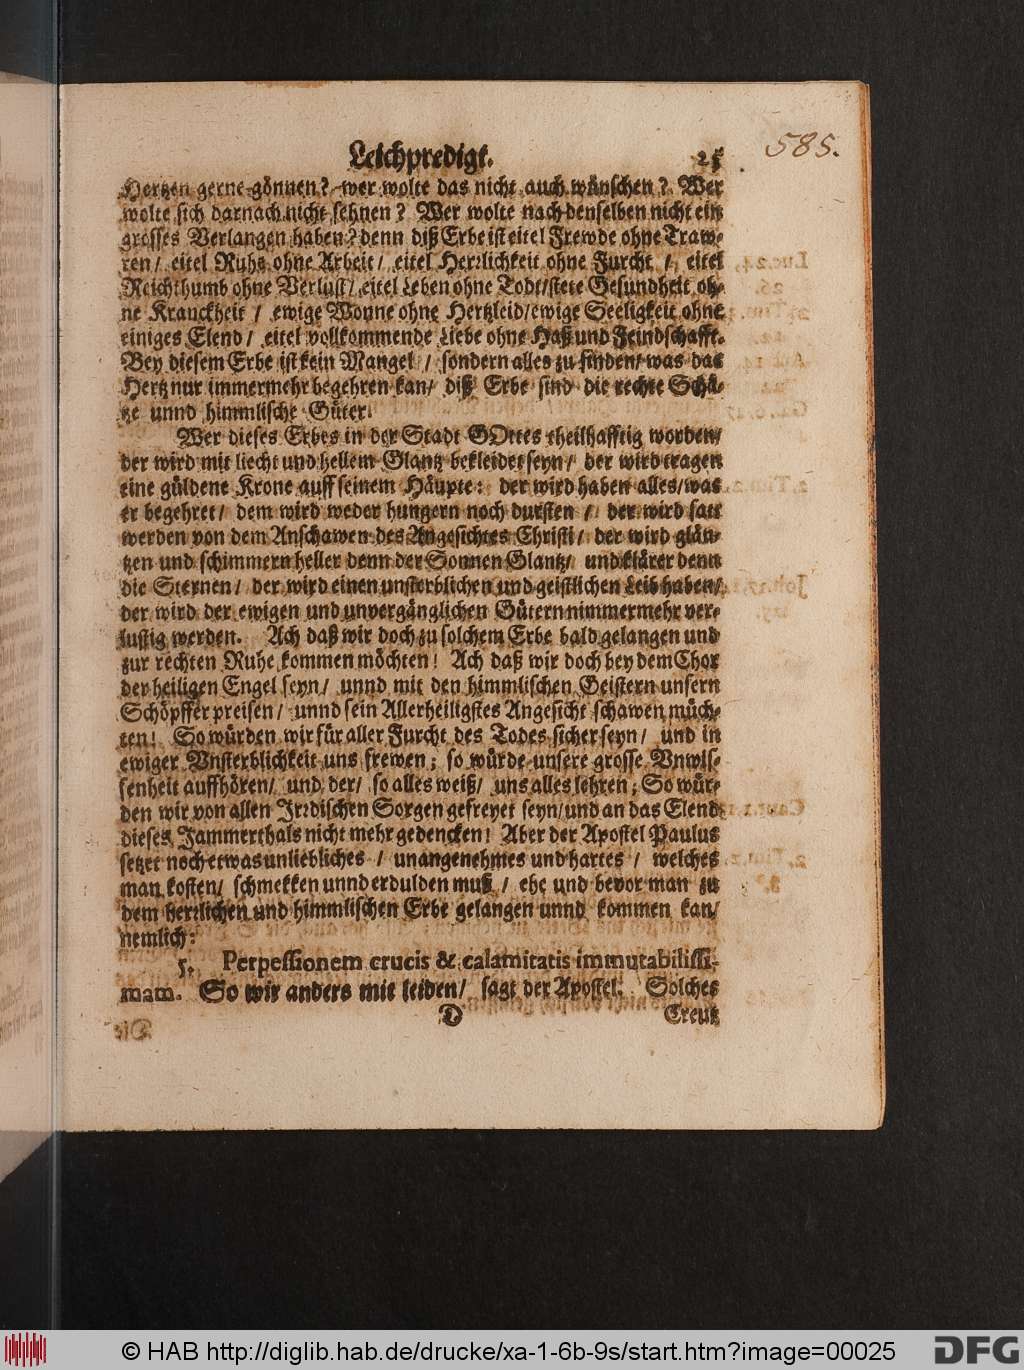 Leichpredigt. 25
585.
Hertzen gerne gönnen? wer wolte das nicht auch wünschen? Wer
wolte sich darnach nicht sehnen? Wer wolte nach denselben nicht ein
grosses Verlangen haben? denn diß Erbe ist eitel Frewde ohne Traw-
ren/ eitel Ruhe ohne Arbeit/ eitel Herrlichkeit ohne Furcht / eitel
Reichthumb ohne Verlust/ eitel Leben ohne Todt/ stete Gesundheit oh-
ne Kranckheit / ewige Wonne ohne Hertzleid/ ewige Seeligkeit ohne
einiges Elend / eitel vollkommende Liebe ohne Haß und Feindschafft.
Bey diesem Erbe ist kein Mangel / sondern alles zu finden/ was das
Hertz nur immermehr begehren kan/ diß Erbe sind die rechte Schä-
tze unnd himmlische Güter.
Wer dieses Erbes in der Stadt GOttes theilhafftig worden/
der wird mit liecht und hellem Glantz bekleidet seyn/ der wird tragen
eine güldene Krone auff seinem Häupte: der wird haben alles/ was
er begehret/ dem wird weder hungern noch dursten / der wird satt
werden von dem Anschawen des Angesichtes Christi/ der wird glän-
tzen und schimmern heller denn der Sonnen Glantz/ und klärer denn
die Sternen/ der wird einen unsterblichen und geistlichen Leib haben/
der wird der ewigen und unvergänglichen Gütern nimmermehr ver-
lustig werden. Ach daß wir doch zu solchem Erbe bald gelangen und
zur rechten Ruhe kommen möchten! Ach daß wir doch bey dem Chor
der heiligen Engel seyn/ unnd mit den himmlischen Geistern unsern
Schöpffer preisen/ unnd sein Allerheiligstes Angesicht schawen müch-
ten! So würden wir für aller Furcht des Todes sicher seyn/ und in
ewiger Vnsterblichkeit uns frewen; so würde unsere grosse Vnwis-
senheit auffhören/ und der/ so alles weiß/ uns alles lehren; So wür-
den wir von allen Irrdischen Sorgen gefreyet seyn/ und an das Elend
dieses Jammerthals nicht mehr gedencken! Aber der Apostel Paulus
setzet noch etwas unliebliches / unangenehmes und hartes / welches
man kosten/ schmekken unnd erdulden muß / ehe und bevor man zu
dem herrlichen und himmlischen Erbe gelangen unnd kommen kan/
nemlich:
5. Perpessionem crucis & calamitatis immutabilissi-
mam. So wir anders mit leiden/ sagt der Apostel. Solches
D Creutz
© HAB http://diglib.hab.de/drucke/xa-1-6b-9s/start.htm?image=00025
DFG